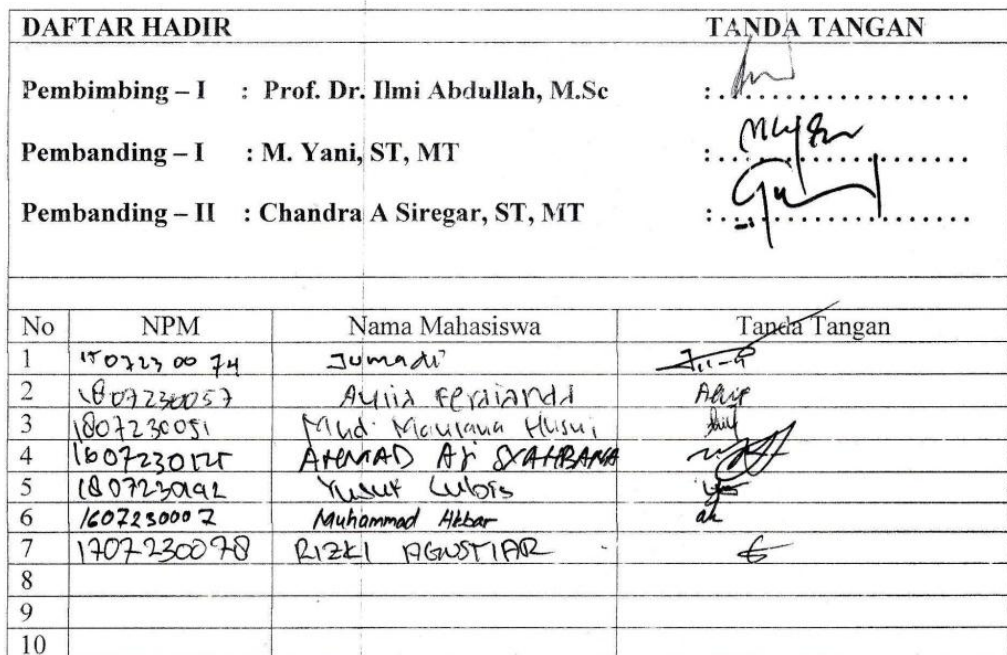 DAFTAR HADIR TANDA TANGAN
Pembimbing – I : Prof. Dr. Ilmi Abdullah, M.Sc :....................
Pembanding – I : M. Yani, ST, MT :....................
Pembanding – II : Chandra A Siregar, ST, MT :....................
No NPM Nama Mahasiswa Tanda Tangan
1 1507230074 Jumadi
2 1807230057
3 1807230051 Muhd. Maulana Husni
4 AHMAD AJI SYAHBANA
5 Yusuf Lubis
6 1607230007 Muhammad Akbar
7 1707230078 RIZKI AGUSTIAR
8
9
10